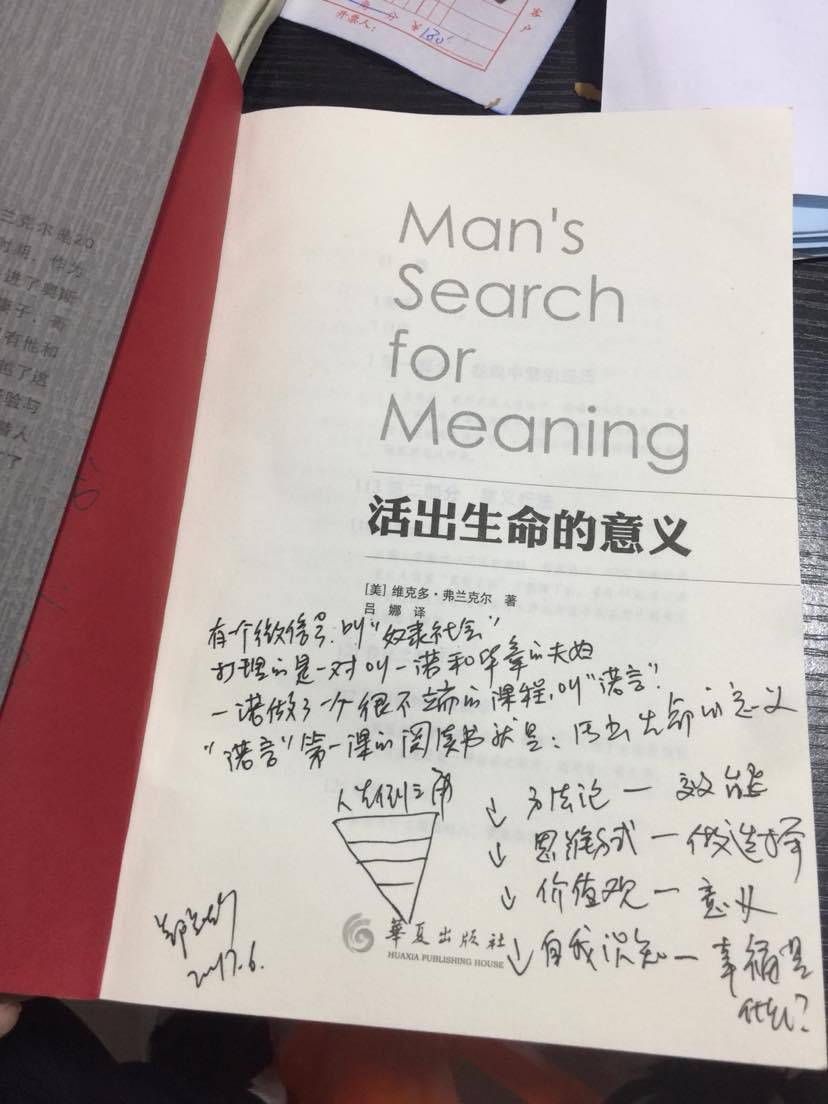 开票人：
¥180
客户
兰克尔是20
时期，作为
进了奥斯
妻子、哥
有他和
越了这
经验与
人
了
Man's
Search
for
Meaning
活出生命的意义
[美] 维克多·弗兰克尔 著
吕 娜 译
有一个微信号，叫“奴隶社会”
打理的是一对叫一诺和华章的夫妇
一诺做了一个很不端的课程，叫“诺言”.
“诺言”第一课的阅读书就是：活出生命的意义
人生倒三角
↓ 方法论 — 效能
↓ 思维方式 — 做选择
↓ 价值观 — 意义
↓ 自我认知 — 幸福是
什么?
2017.6.
華夏出版社
HUAXIA PUBLISHING HOUSE